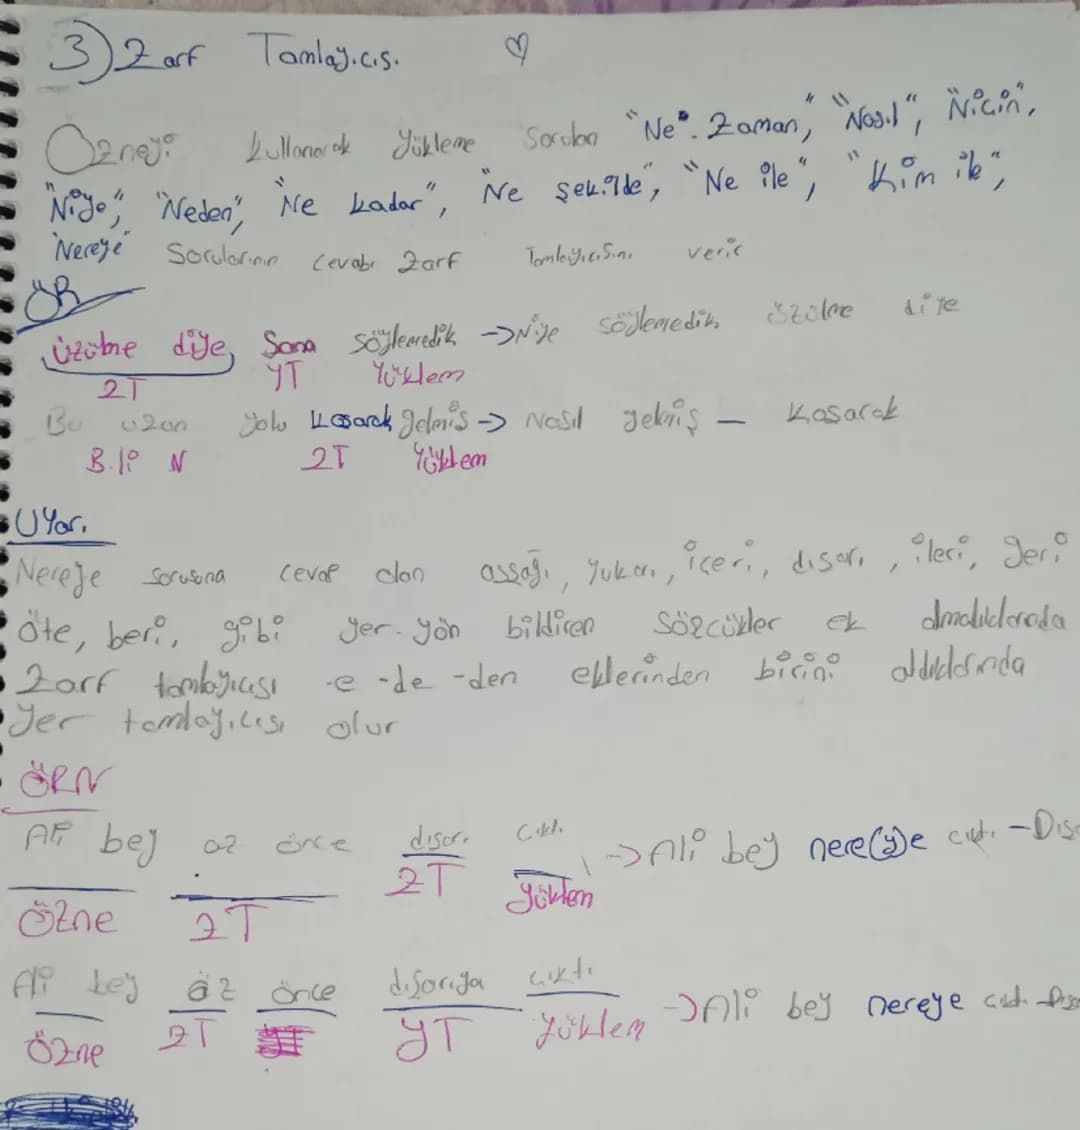 3) Zarf Tamlayıcıs.
Özneyi kullanarak Yükleme Sorulan "Ne Zaman", "Nasıl", "Niçin",
"Niye", "Neden", "Ne kadar", "Ne şekilde", "Ne ile", "Kim ile",
"Nereye" Sorularının cevabı Zarf Tamlayıcısını verir
ÖR
üzülme diye, Sana söylemedik -> Niye söylemedik üzülme diye
ZT YT Yüklem
Bu uzun yolu Koşarak gelmiş -> Nasıl gelmiş - Koşarak
B.li N ZT Yüklem
UYarı
Nereye sorusuna cevap olan assağı, yukarı, içeri, dışarı, ileri, geri
öte, beri, gibi yer-yön bildiren sözcükler ek almadıklarında
Zarf tamlayıcısı -e -de -den eklerinden birini aldıklarında
yer tamlayıcısı olur
ÖRN
Ali bey az önce dışarı Çıktı -> Ali bey nere(y)e çıktı - Dış
Özne ZT ZT yüklem
Ali bey az önce dışarıya çıktı -> Ali bey nereye çıktı
Özne ZT YT Yüklem